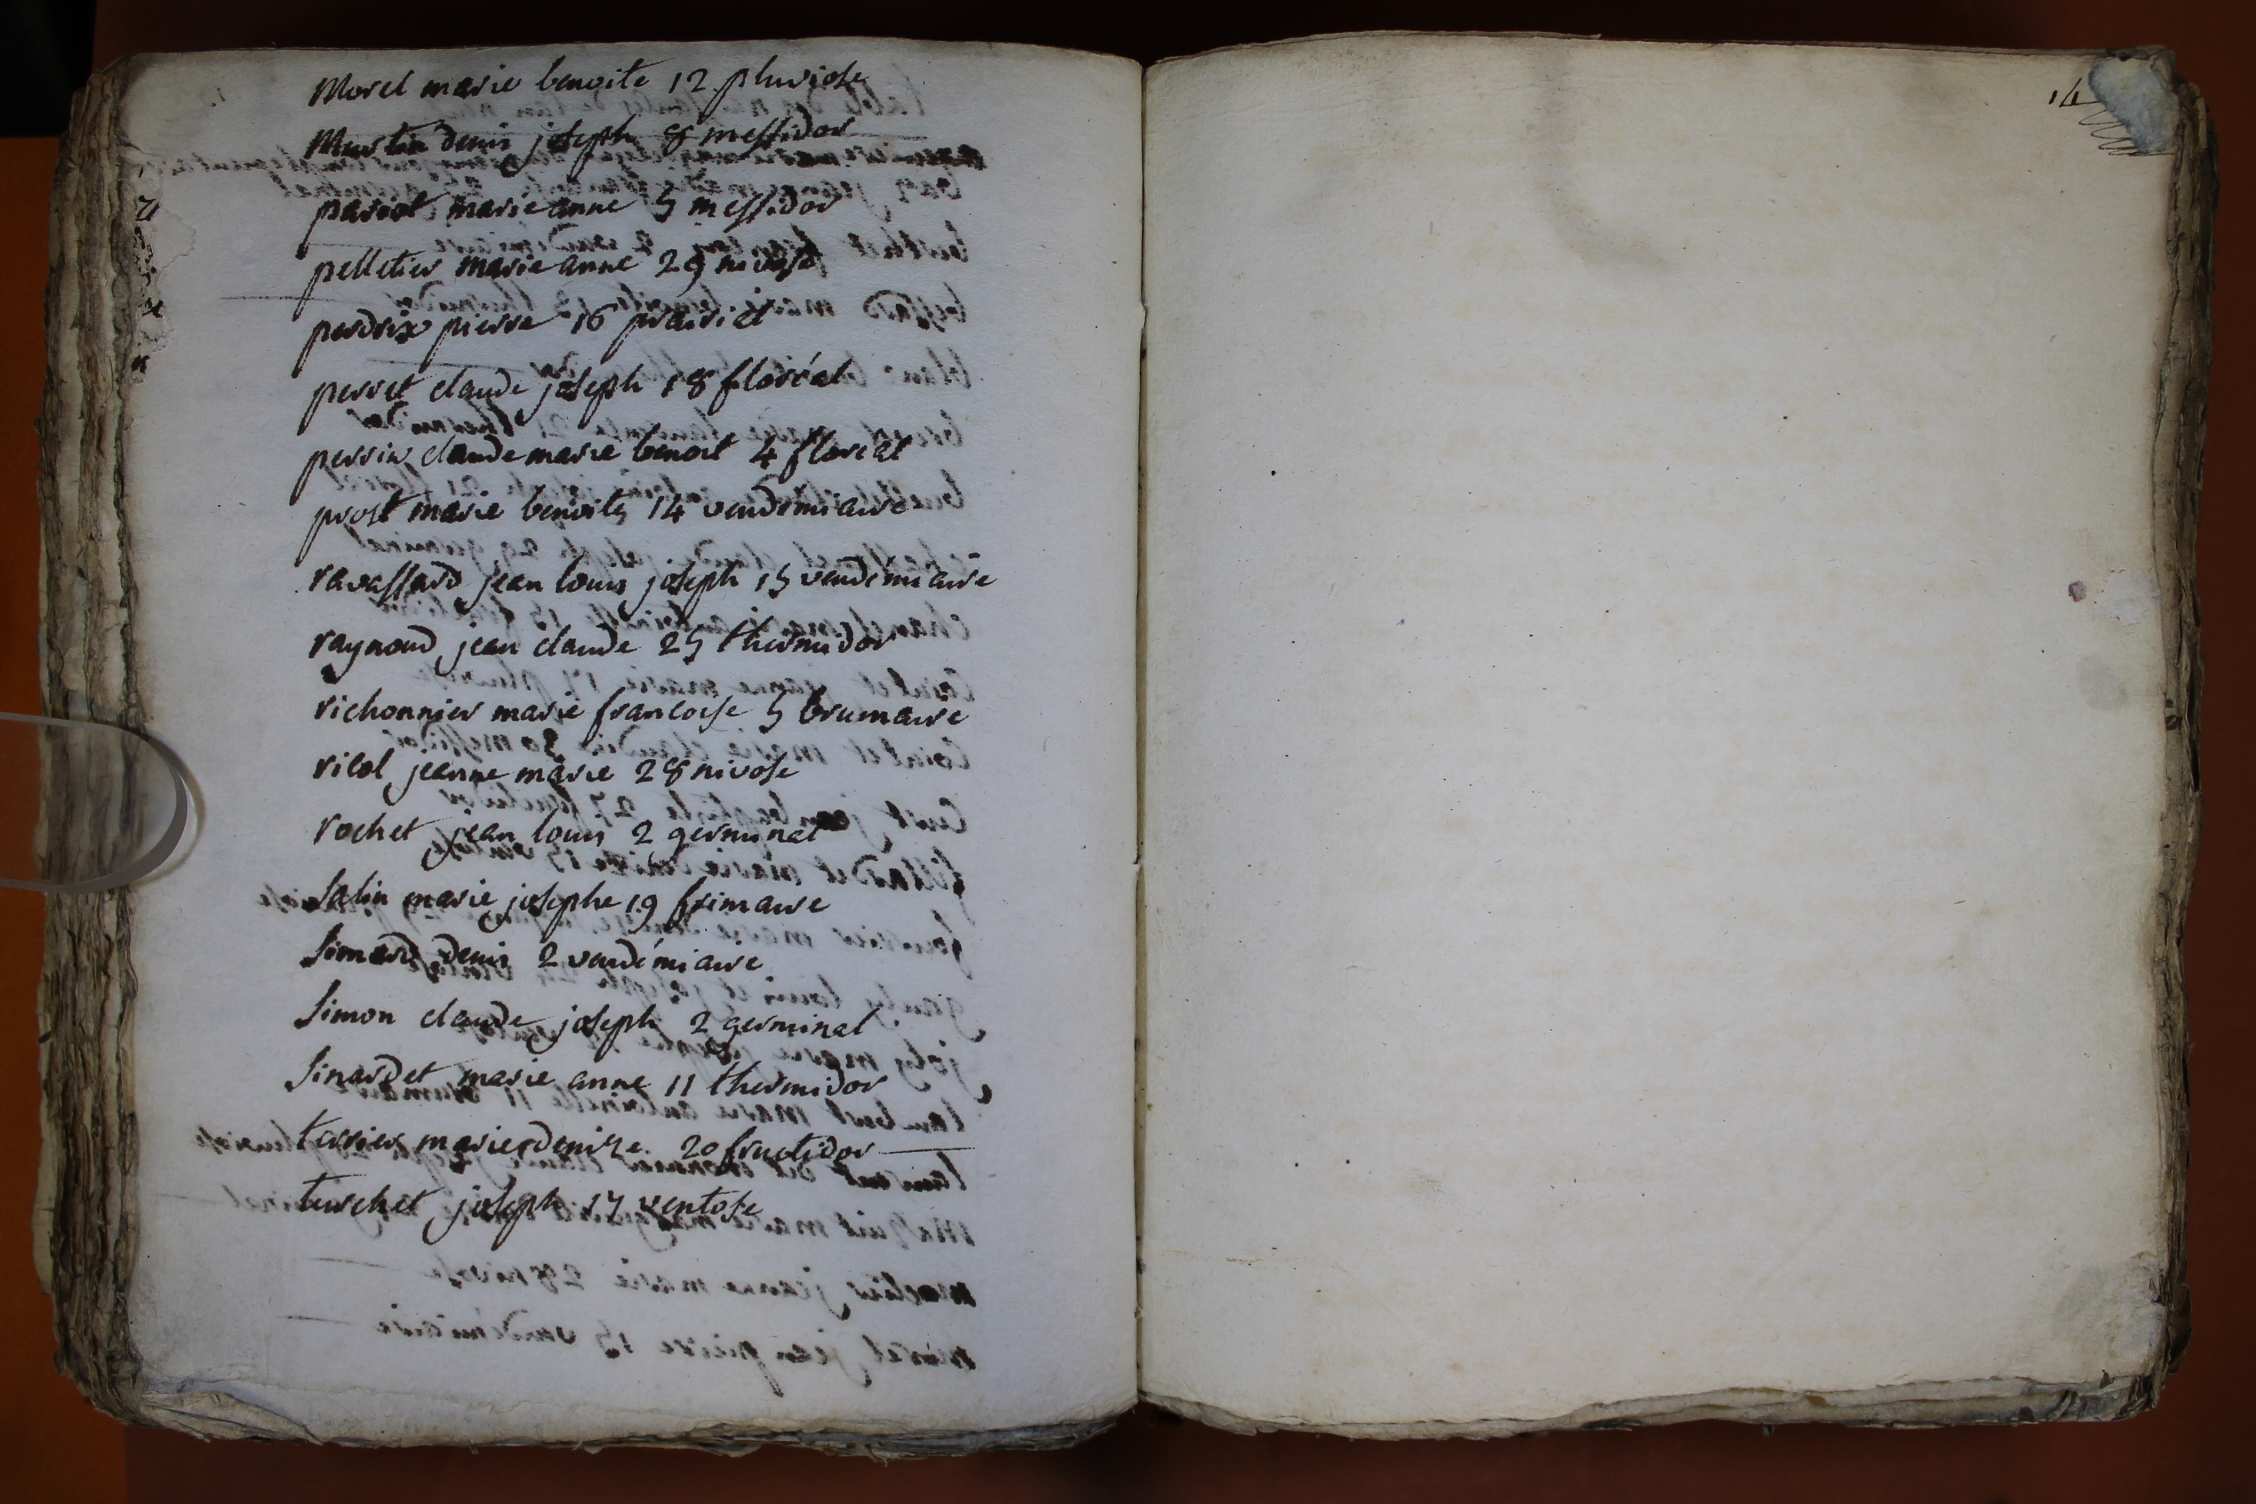 Morel marie benoite 12 pluviose
Mustin denis joseph 8 messidor
pariot marie anne 5 messidor
pelletier marie anne 29 nivose
perdrix pierre 16 prairial
perret claude joseph 18 floréal
perrin claude marie benoit 4 floreal
prost marie benoite 14 vendemiaire
ravassard jean louis joseph 15 vendemiaire
raynaud jean claude 25 thermidor
richonnier marie francoise 5 brumaire
rilol jeanne marie 28 nivose
rochet jean louis 2 germinal
Salin marie josephe 19 frimaire
Simard denis 2 vendémiaire
Simon claude joseph 2 germinal
Sinardet marie anne 11 thermidor
terrier marie denize 20 fructidor
turchet joseph 17 ventose
14